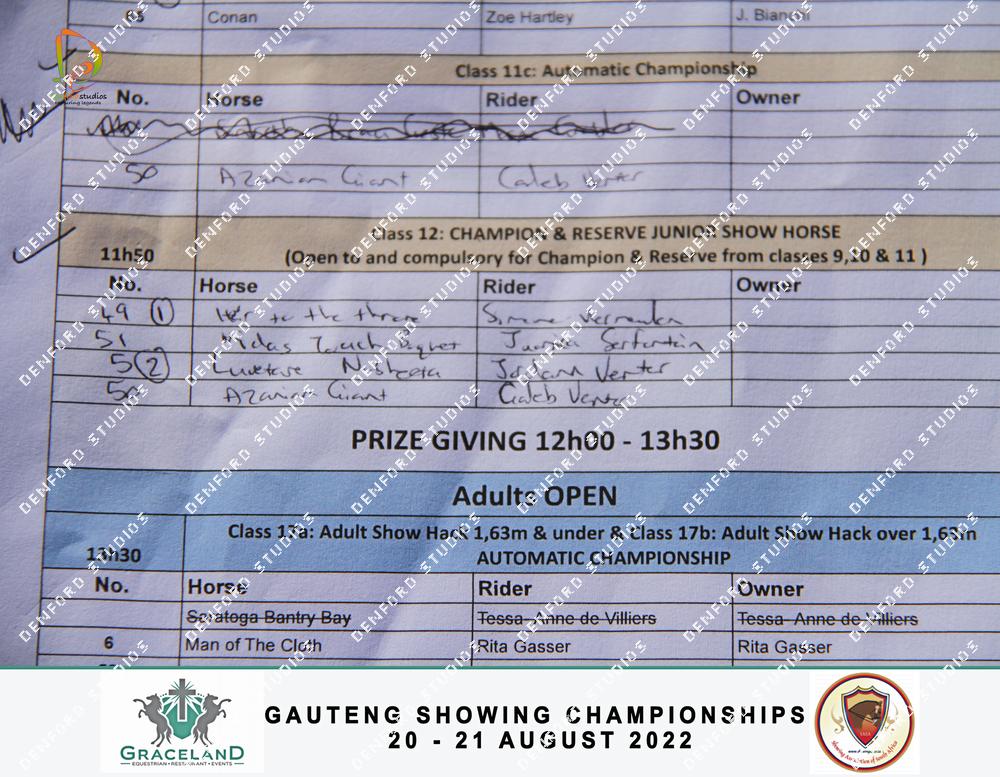 65 Conan Zoe Hartley J. Bianchi
studios
Class 11c: Automatic Championship
No. Horse Rider Owner
50 Azanian Giant Caleb Venter
Class 12: CHAMPION & RESERVE JUNIOR SHOW HORSE
11h50 (Open to and compulsory for Champion & Reserve from classes 9,10 & 11 )
No. Horse Rider Owner
49 (1) Heir to the throne Simone
51 Midas Touch
5 (2) Jordann Venter
50 Azanian Giant Caleb Venter
PRIZE GIVING 12h00 - 13h30
Adults OPEN
Class 17a: Adult Show Hack 1,63m & under & Class 17b: Adult Show Hack over 1,63m
13h30 AUTOMATIC CHAMPIONSHIP
No. Horse Rider Owner
Saratoga Bantry Bay Tessa-Anne de Villiers Tessa-Anne de Villiers
6 Man of The Cloth Rita Gasser Rita Gasser
GRACELAND
EQUESTRIAN • RESTAURANT • EVENTS
GAUTENG SHOWING CHAMPIONSHIPS
20 - 21 AUGUST 2022
DENFORD STUDIOS